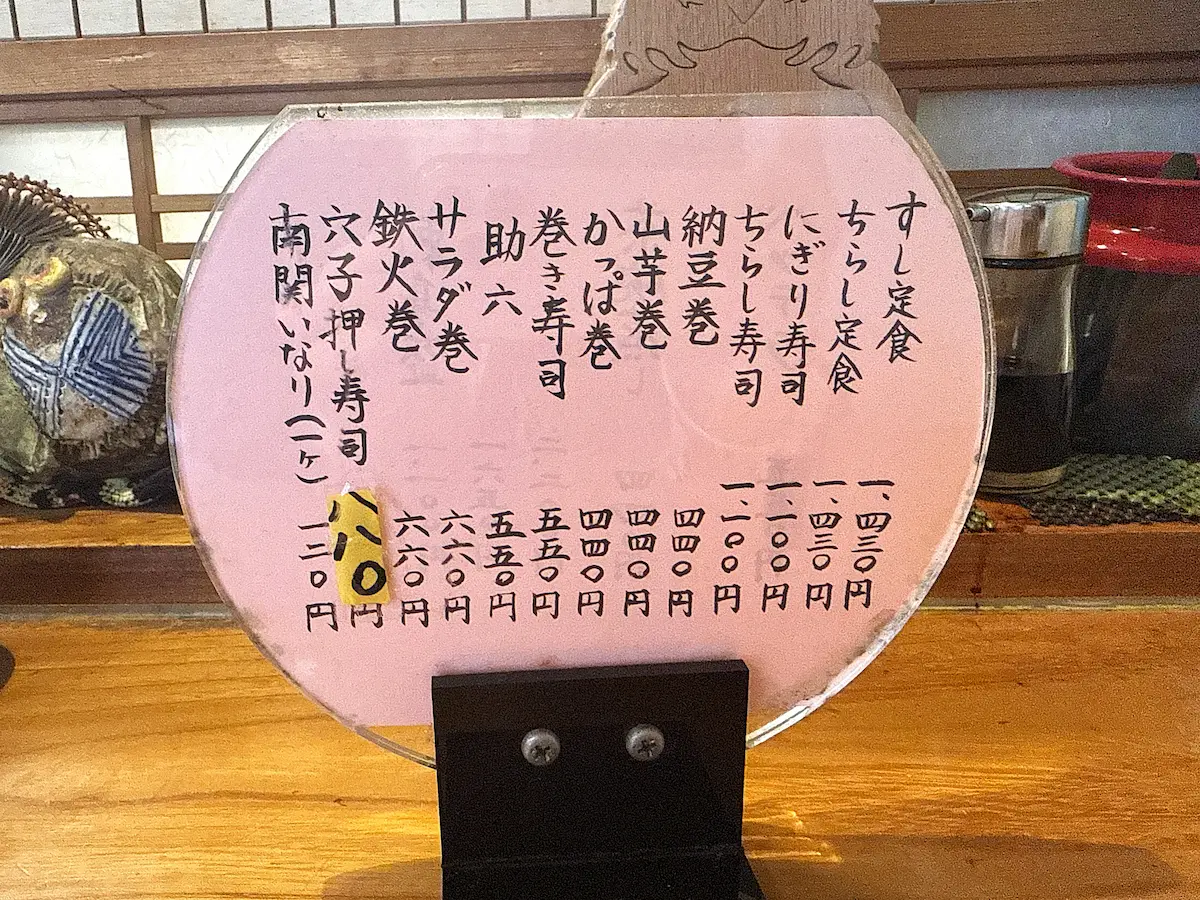 すし定食 一、四三〇円
ちらし定食 一、四三〇円
にぎり寿司 一、一〇〇円
ちらし寿司 一、一〇〇円
納豆巻 四四〇円
山芋巻 四四〇円
かっぱ巻 四四〇円
巻き寿司 五五〇円
助六 五五〇円
サラダ巻 六六〇円
鉄火巻 六六〇円
穴子押し寿司 八八〇円
南関いなり(一ヶ) 一二〇円